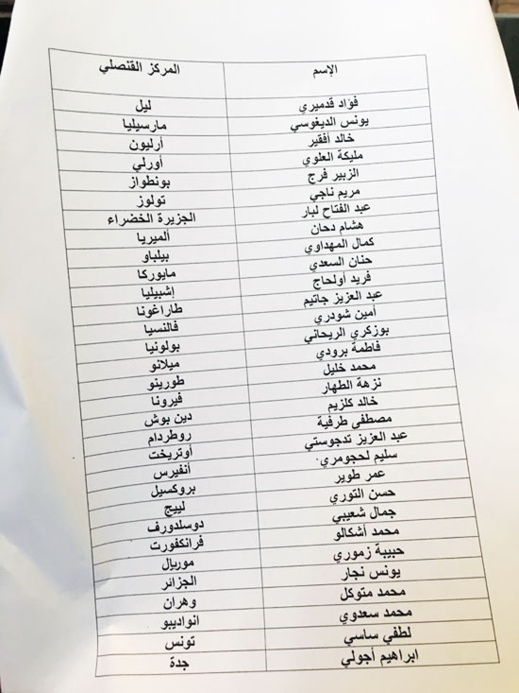 الإسم المركز القنصلي
فؤاد قدميري ليل
يونس الديغوسي مارسيليا
خالد أفقير أرليون
مليكة العلوي أورلي
الزبير فرج بونطواز
مريم ناجي تولوز
عبد الفتاح لبار الجزيرة الخضراء
هشام دحان ألميريا
كمال المهداوي بيلباو
حنان السعدي مايوركا
فريد أولحاج إشبيليا
عبد العزيز جاتيم طاراغونا
أمين شودري فالنسيا
بوزكري الريحاني بولونيا
فاطمة برودي ميلانو
محمد خليل طورينو
نزهة الطهار فيرونا
خالد كلزيم دين بوش
مصطفى طرفية روطردام
عبد العزيز تدجوستي أوتريخت
سليم لحجومري أنفيرس
عمر طوير بروكسيل
حسن التوري لييج
جمال شعيبي دوسلدورف
محمد أشكالو فرانكفورت
حبيبة زموري موريال
يونس نجار الجزائر
محمد متوكل وهران
محمد سعدوي انواديبو
لطفي ساسي تونس
ابراهيم أجولي جدة